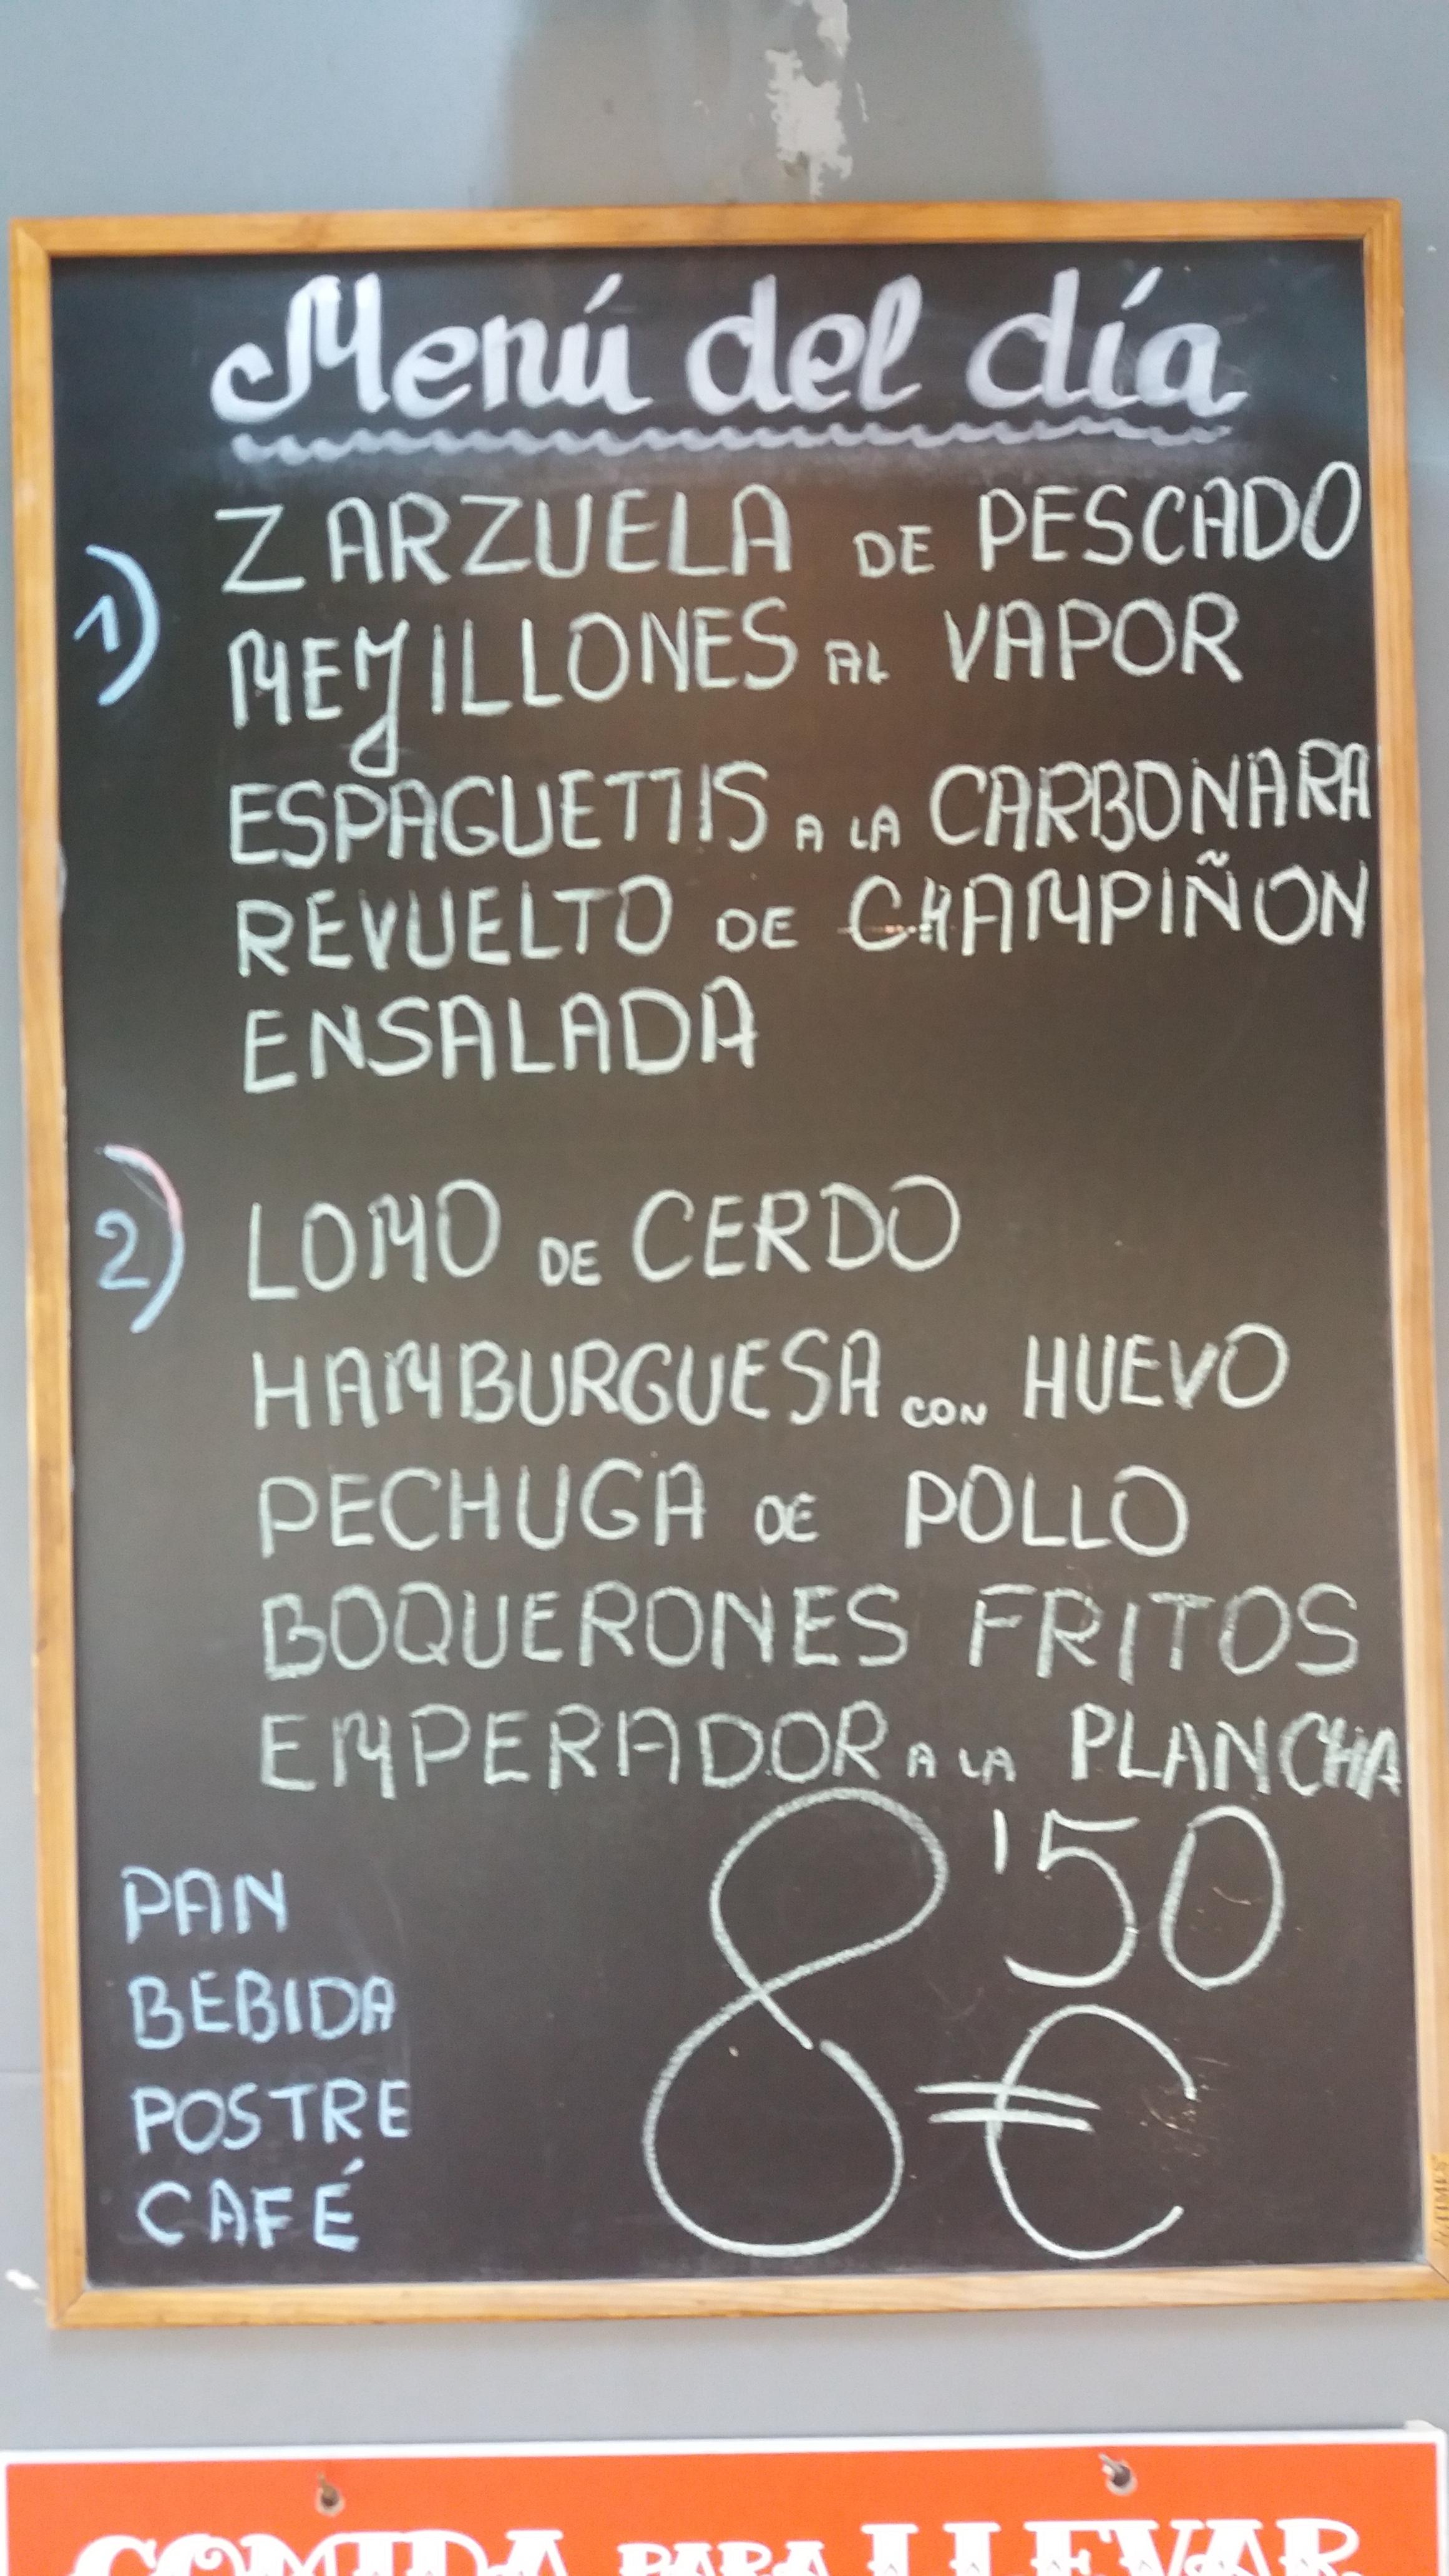 Menú del día
1) ZARZUELA DE PESCADO
MEJILLONES AL VAPOR
ESPAGUETTIS A LA CARBONARA
REVUELTO DE CHAMPIÑON
ENSALADA
2) LOMO DE CERDO
HAMBURGUESA CON HUEVO
PECHUGA DE POLLO
BOQUERONES FRITOS
EMPERADOR A LA PLANCHA
PAN
BEBIDA
POSTRE
CAFÉ
8'50
€
COMIDA PARA LLEVAR